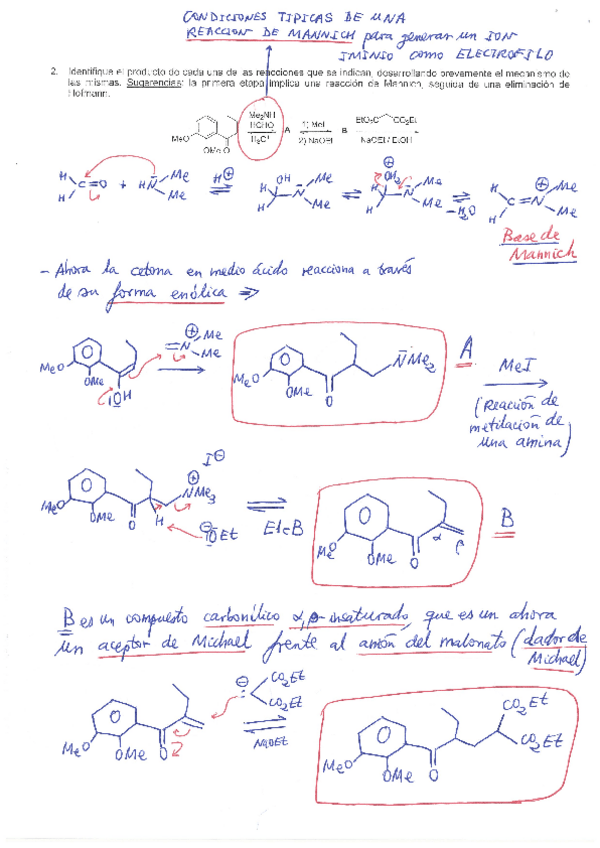 CONDICIONES TIPICAS DE UNA
REACCION DE MANNICH para generar un ION
IMINIO COMO ELECTROFILO
2. Identifique el producto de cada una de las reacciones que se indican, desarrollando brevemente el mecanismo de
las mismas. Sugerencias: la primera etapa implica una reacción de Mannich, seguida de una eliminación de
Hofmann.
Me2NH
HCHO
A
1) MeI
2) NaOEt
B
EtO2C CO2Et
NaOEt / EtOH
MeO
OMe O
H
H
C=O + HN
Me
Me
H⊕
OH
H
H
N
Me
Me
⊕
OH2
H
H
N
Me
Me
-H2O
H
H
C=N
⊕
Me
Me
Base de
Mannich
- Ahora la cetona en medio ácido reacciona a través
de su forma enólica ⇒
MeO
OMe
OH
=N
⊕
Me
Me
MeO
OMe
O
NMe2
A
MeI
(Reacción de
metilación de
una amina)
I⊖
⊕
NMe3
MeO
OMe
O
H
⊖
OEt
E1cB
MeO
OMe
O
α
β
B
B es un compuesto carbonílico α,β-insaturado, que es un ahora
un aceptor de Michael frente al anión del malonato (dador de
Michael)
MeO
OMe
O
⊖
CO2Et
CO2Et
NaOEt
MeO
OMe
O
CO2Et
CO2Et